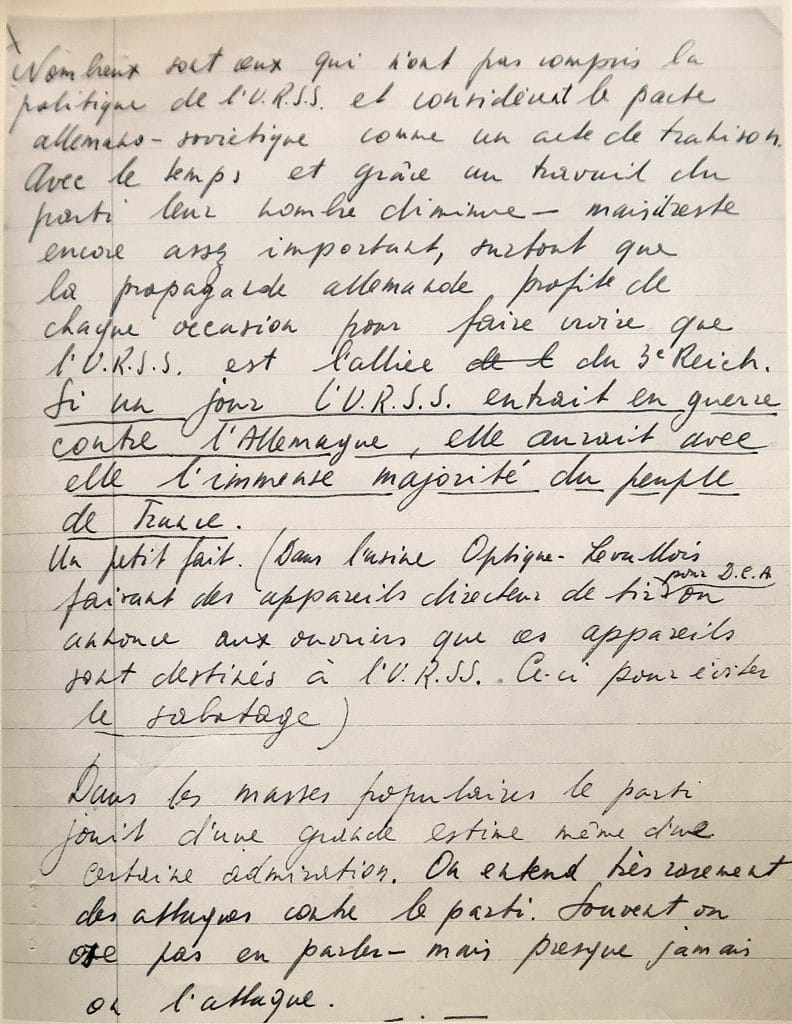 Nombreux sont ceux qui n'ont pas compris la
politique de l'U.R.S.S. et considérent le pacte
allemano-soviétique comme un acte de trahison.
Avec le temps et grâce au travail du
parti leur nombre diminue — mais il reste
encore assez important, surtout que
la propagande allemande profite de
chaque occasion pour faire croire que
l'U.R.S.S. est l'alliée de l du 3e Reich.
Si un jour l'U.R.S.S. entrait en guerre
contre l'Allemagne, elle aurait avec
elle l'immense majorité du peuple
de France.
Un petit fait. (Dans l'usine Optique-Levallois
pour D.C.A
faisant des appareils directeur de tir on
annonce aux ouvriers que ces appareils
sont destinés à l'U.R.SS. Ce-ci pour éviter
le sabotage)
Dans les masses populaires le parti
jouit d'une grande estime même d'une
certaine admiration. On entend très rarement
des attaques contre le parti. Souvent on
ose pas en parler — mais presque jamais
on l'attaque.
— . —